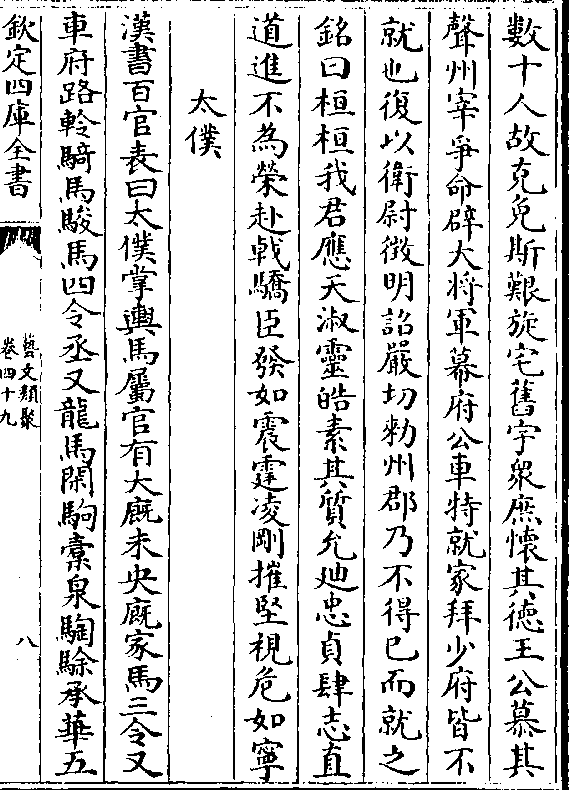 數十人故克免斯艱旋宅舊宇衆庶懷其徳王公慕其
聲州宰爭命辟大將軍幕府公車特就家拜少府皆不
就也復以衛尉徴明詔嚴切勑州郡乃不得已而就之
銘曰桓桓我君應天淑靈皓素其質允廸忠貞肆志直
道進不為榮赴戟驕臣發如震霆凌剛摧堅視危如寧
太僕
漢書百官表曰太僕掌輿馬屬官有大廐未央廐家馬三令又
車府路軨騎馬駿馬四令丞又龍馬閑駒橐泉騊駼承華五
欽定四庫全書
藝文類聚
卷四十九
八